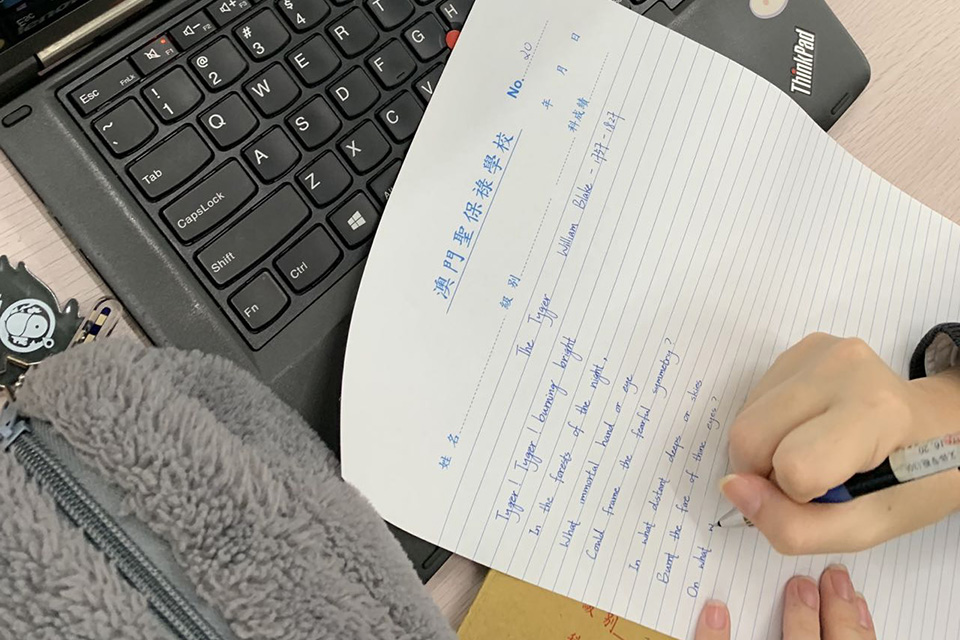 Esc FnLk F1 F2 F3
~ ` ! 1 @ 2 # 3 $ 4
Tab Q W E R T
CapsLock A S D F G H
Shift Z X C V
Fn Ctrl
ThinkPad
澳門聖保祿學校
No. 20
年 月 日
姓名 級別 科成績
The Tyger William Blake - 1757 - 1827
Tyger! Tyger! burning bright
In the forests of the night,
What immortal hand or eye
Could frame the fearful symmetry?
In what distant deeps or skies
Burnt the fire of thine eyes?
On what w